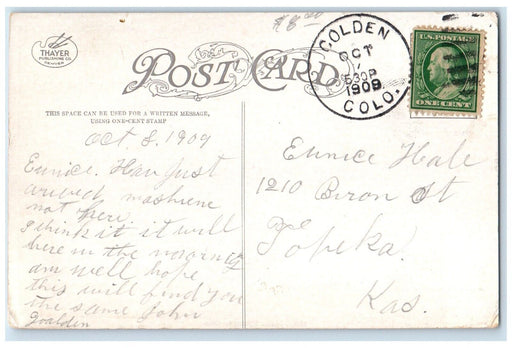 $8.00
THAYER
PUBLISHING CO.
DENVER
POST CARD
GOLDEN
OCT
7
530P
1909
COLO.
U.S. POSTAGE
ONE CENT
THIS SPACE CAN BE USED FOR A WRITTEN MESSAGE,
USING ONE-CENT STAMP
Oct 8. 1909
Eunice. Have Just
arived mashiene
not here.
I think it it will
here in the morning
am well hope
this will find you
the same John
Goalden
Eunice Hale
1210 Biron St
Topeka.
Kas.